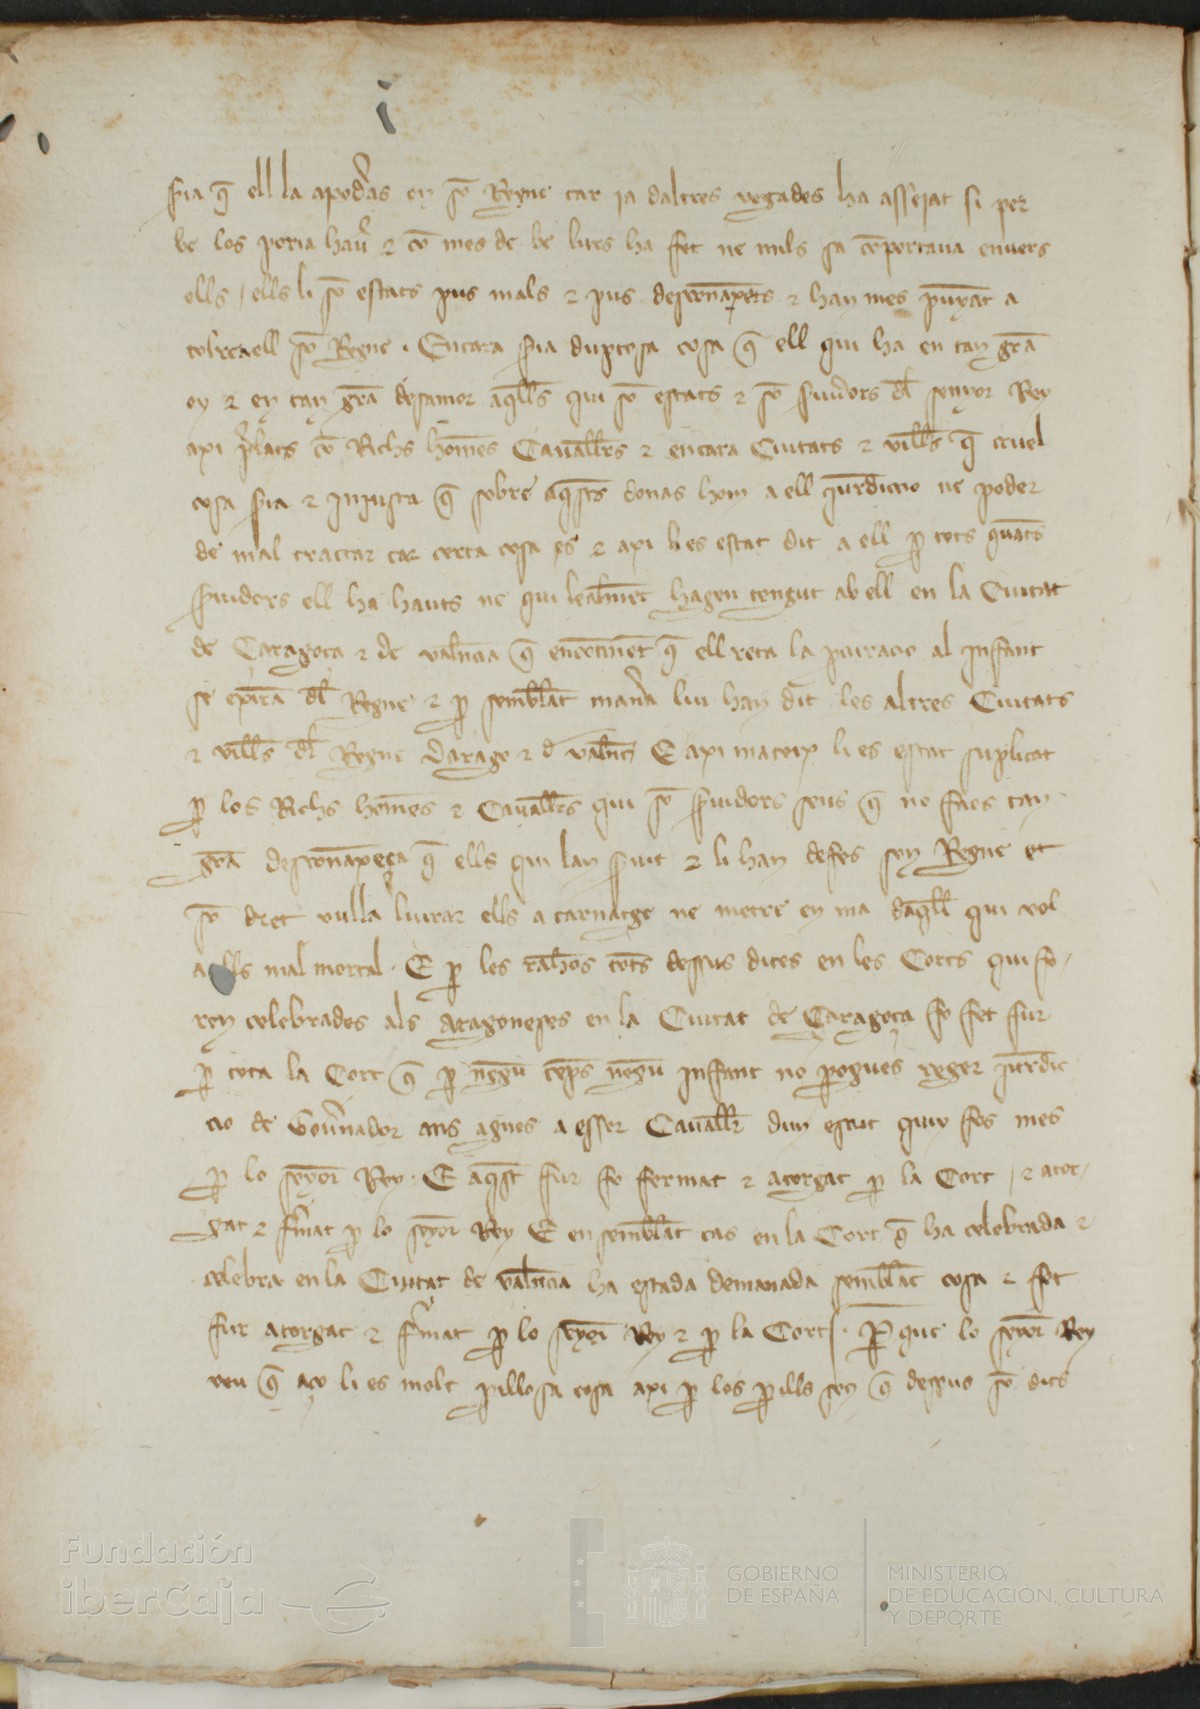 s̃ia q̃ ell la apoderas en so̅ Regne car ia daltres vegades ha assejat si per
be los poria hau̅ ⁊ co̅ mes de be lurs ha fet ne mils sa co̅portaua enuers
ells / ells li so̅ estats pus mals ⁊ pus ⁊ han mes a
tolrea ell so̅ Regne . Encara s̃ia duptosa cosa q̃ ell qui ha en tan gra̅
oy ⁊ en tan gra̅ desamor aq̃lls qui so̅ estats ⁊ so̅ s̃uidors dl̅ senyor Rey
axi p̃lats co̅ Richs home̅s Cauall̅rs ⁊ encara Ciutats ⁊ vill̅s q̃ cruel
cosa s̃ia ⁊ Injusta q̃ sobre aq̃sts donas hom a ell jur̅diccio ne poder
de mal tractar car certa cosa es ⁊ axi li es estat dit a ell p̱ tots qua̅ts
s̃uidors ell ha hauts ne qui lealme̅t hagen tengut ab ell en la Ciutat
de Caragoça ⁊ de vale̅ncia q̃ enco̅tine̅t q̃ ell reta la p̃curacio al Inffant
se dl̅ Regne ⁊ p̱ sembla̅t man̅a lui han dit les altres Ciutats
⁊ vill̅s dl̅ Regne Darago ⁊ d̅ vale̅nc̅ E axi mateix li es estat suplicat
p̱ los Richs home̅s ⁊ Cauall̅rs qui so̅ s̃uidors seus q̃ no faes tan
gra̅ q̃ ells qui lan s̃uit ⁊ li han defes son Regne et
so̅ dret vulla liurar ells a carnatge ne metre en ma daq̃ll qui vol
a ells mal mortal . E p̱ les raho̅s tot̅s dessus dites en les Corts qui fo-
ren celebrades als Aragoneses en la Ciutat de Caragoça fo fet fur
p̱ tota la Cort q̃ p̱ negu̅ te̅ps negu̅ Inffant no pogues reger jur̅dic
cio de Gou̅nador ans agues a esser Cauall̅r dun escut quiy fos mes
p̱ lo senyor Rey . E aq̃st fur fo fermat ⁊ atorgat p̱ la Cort / ⁊ ator-
gat ⁊ f̃mat p̱ lo senyor Rey E en sembla̅t cas en la Cort q̃ ha celebrada ⁊
celebra en la Ciutat de vale̅ncia ha estada demanada sembla̅t cosa ⁊ fet
fur atorgat ⁊ f̃mat p̱ lo senyor Rey ⁊ p̱ la Cort . P̱ que lo senyor Rey
veu q̃ aço li es molt p̱illosa cosa axi p̱ los p̱ills q̃ dessus so̅ dits
Fundación
iberCaja
GOBIERNO
DE ESPAÑA
MINISTERIO
DE EDUCACIÓN, CULTURA
Y DEPORTE